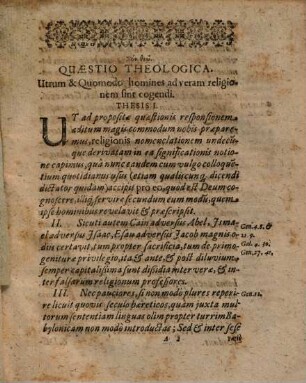 QUÆSTIO THEOLOGICA.
Utrum & Quomodo homines ad veram religio-
nem sint cogendi.
THESIS I.
UT ad propositæ quæstionis responsionem
aditum magis commodum nobis præpare-
mus, religionis nomenclationem undecun-
que derivatam in ea significationis notio-
ne capimus, quâ nunc eandem cum vulgo colloquen-
tium quotidianus usus (etiam qualicunque dicendi
dictator quidam) accipit pro eo, quod est Deum cogno-
scere, illiq; servire secundum eum modũ, quem
ipse hominibus revelavit & præscripsit.
II. Sicuti autem Cain adversus Abel, Isma-
el adversus Isaac, Esau adversus Jacob magnis
odiis certavit, tum propter sacrificia, tum de primo-
geniture privilegio, ita & ante, & post diluvium
semper capitalissima sunt dissidia inter veræ, & in-
ter falsarum religionum professores.
Gen. 4. 8. &
21. 9.
Gen. 27. 41.
III. Nec pauciores, si non modò plures reperi-
re licuit quovis seculo hæreticos, quàm juxta mul-
torum sententiam linguas olim propter turrim Ba-
bylonicam non modò introductas; Sed & inter sese
Gen. 11.
A 2